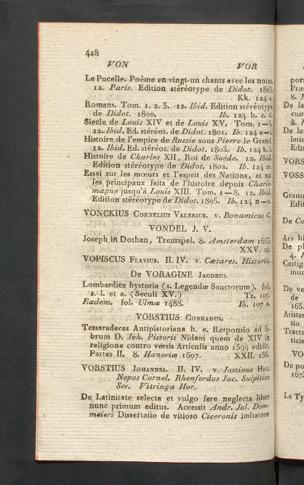 428
VON VOR
La Pucelle. Poème en vingt-un chants avec les notes.
12. Paris. Edition stéréotype de Didot. 1805.
Kk. 124
Romans. Tom. 1. 2. 3. 12. Ibid. Edition stéréotype
de Didot. 1800. Ib. 124 b. c. d.
Siecle de Louis XIV et de Louis XV. Tom. 1—5.
12. Ibid. Ed. stéréot. de Didot. 1801. Ib. 124 e—i.
Histoire de l'empire de Russie sous Pierre le Grand.
12. Ibid. Ed. stéréot de Didot. 1803. Ib. 124 k. l.
Histoire de Charles XII, Roi de Suède. 12. Ibid.
Edition stéréotype de Didot. 1802. Ib. 124
Essai sur les mœurs et l'esprit des Nations, et sur
les principaux faits de l'histoire depuis Charle-
magne jusqu'à Louis XIII. Tom. 1—8. 12. Ibid.
Edition stéréotype de Didot. 1805. Ib. 124 n—u.
VONCKIUS Cornelius Valerius. v. Bonamicus C.
VONDEL J. V.
Joseph in Dothan, Treurspel. 8. Amsterdam
XXV. 2
VOPISCUS Flavius. II. IV. v. Cæsares. Historia.
De VORAGINE Jacobus.
Lombardica hystoria (s. Legendæ Sanctorum). fol.
s. l. et a. (Seculi XV.) Tz. 107.
Eadem. fol. Ulmæ 1488. Ib. 107
VORSTIUS Conradus.
Tessaradecas Antipistoriana h. e. Responsio ad li-
brum D. Joh. Pistorii Nidani quem de XIV in
religione contro versis Articulis anno 1599 edidit.
Partes II. 8. Hanoviæ 1607. XXII. 156.
VORSTIUS Johannes. II. IV. v. Justinus Hist.
Nepos Cornel. Rhenferdus Jac. Sulpitius
Sev. Vitringa Hor.
De Latinitate selecta et vulgo fere neglecta liber
nunc primum editus. Accessit Andr. Jul. Dorn-
meieri Dissertatio de vitioso Ciceronis imitatore